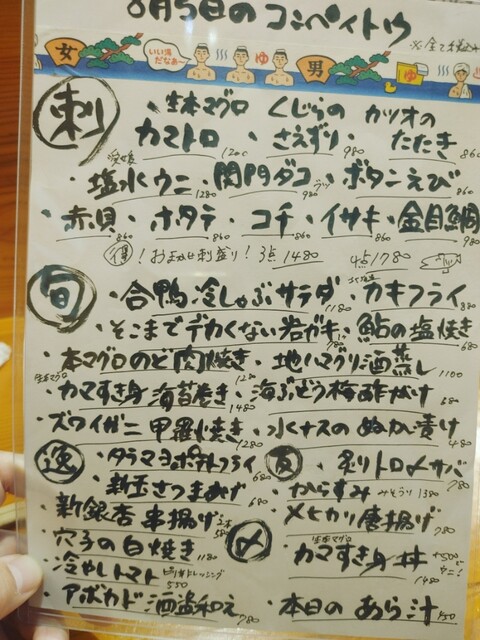 8月5日のコンペイトウ
女
いい湯だなぁ〜
ゆ
男
ゆ
刺
・生本マグロカマトロ 1200 ・くじらのさえずり 980 ・カツオのたたき 860
・愛媛 塩水ウニ 1280 ・関門ダコ ・ボタンえび 860
・赤貝 860 ・ホタテ 860 ・コチ 860 ・イサキ 860 ・金目鯛 980
得!おまかせ刺盛り! 3点 1480 4点 1780
旬
・合鴨冷しゃぶサラダ 1180 ・カキフライ 880
・そこまでデカくない岩ガキ ・鮎の塩焼き 680
・本マグロのど肉焼き 1280 ・地ハマグリ酒蒸し 1100
・生本マグロ カマすき身海苔巻き 1480 ・海ぶどう梅酢がけ 680
・ズワイガニ甲羅焼き 1280 ・水ナスのぬか漬け 480
逸
・タラマヨポテトフライ 680
・新玉さつまあげ 680
・新銀杏串揚げ 2本 580
・穴子の白焼き 1180
・冷やしトマト ピリ辛ドレッシング 550
・アボカド酒盗和え 780
友
・炙りトロ〆サバ 780
・からすみ みそうり 1380
・メヒカリ唐揚げ 780
〆
・生本マグロ カマすき身丼 1480 +500でウニ!
・本日のあら汁 450